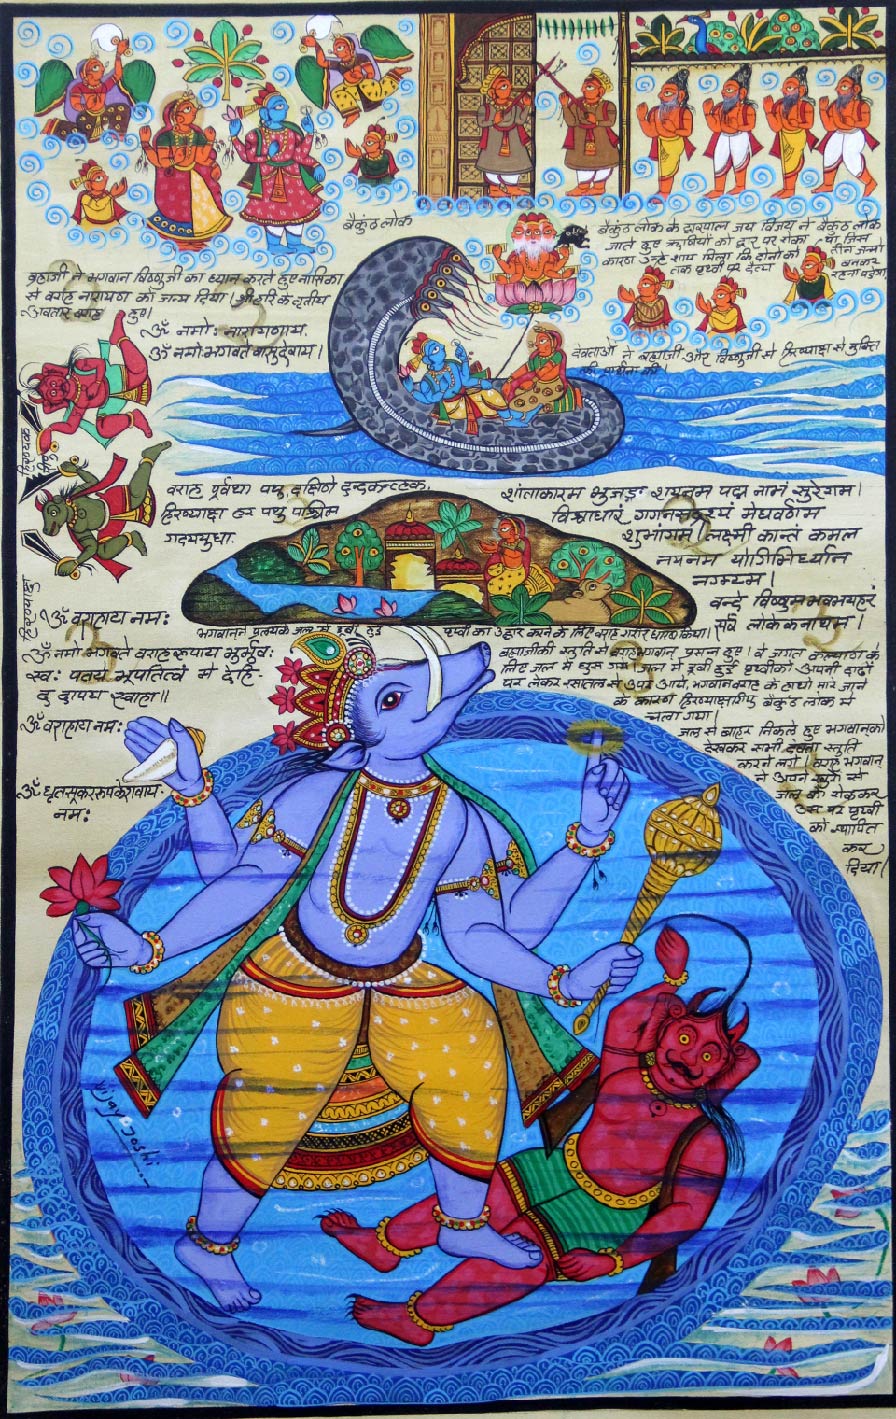 बैकुंठ लोक
बैकुंठ लोक के द्वारपाल जय विजय ने बैकुंठ लोक
जाते हुए ऋषियों को द्वार पर रोका था जिस
कारण उन्हे शाप मिला कि दोनों को तीन जन्मो
तक पृथ्वी पर दैत्य बनकर
रहना पड़ेगा
ब्रह्माजी ने भगवान विष्णुजी का ध्यान करते हुए नासिका
से वराह नारायण को जन्म दिया। श्री हरि के तृतीय
अवतार वराह हुए।
ॐ नमो: नारायणाय:
ॐ नमो भगवते वासुदेवाय।
देवताओं ने ब्रह्माजी और विष्णुजी से हिरण्याक्ष से मुक्ति
की प्रार्थना की।
हिरण्याक्ष
वराह पूर्वधा पथु दक्षिणे
हिरण्याक्षा पथु पश्चिम
गदययुधा
शांताकारम भुजङ शयनम पद्म नामं सुरेशम।
विश्वाधारं गगनसदृश्यं मेघवर्णम
शुभांगम। लक्ष्मी कान्तं कमल
नयनम योगिभिर्ध्यान
नगम्यम।
वन्दे विष्णुमभवभयहरं
सर्व लोकेकनाथम।
ॐ वाराहाय नम:
ॐ नमो भगवते वराह रूपाय भूर्भुव:
स्व: पतये भूपतित्वं मे देहि
द दापय स्वाहा॥
ॐ वाराहाय नम:
ॐ धृतसूकररूपकेशवाय:
नम:
भगवानने प्रलयके जल में डूबी हुई पृथ्वी का उद्धार करने के लिए वराह शरीर धारण किया।
ब्रह्माजीकी स्तुति से वराहभगवान प्रसन्न हुए। वे जगत कल्याण के
लिए जल में घुस गये। जल में डूबी हुई पृथ्वीको अपनी दाढ़ों
पर लेकर रसातल से उपर आये, भगवान वराह के हाथों मारे जाने
के कारण हिरण्याक्ष फिर बैकुंठ लोक में
चला गया।
जल से बाहर निकले हुए भगवानको
देखकर सभी देवता स्तुति
करने लगे। वराह भगवान
ने अपने खुरों से
जल को रोककर
उस पर पृथ्वी
को स्थापित
कर
दिया।
Vijay Joshi